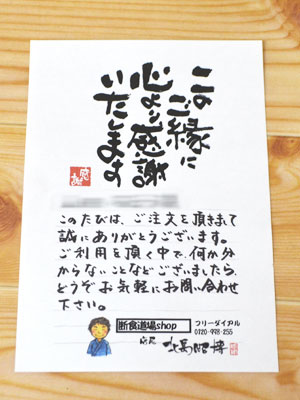 このご縁に
心より感謝
いたします
このたびは、ご注文を頂きまして
誠にありがとうございます。
ご利用を頂く中で、何か分
からないことなどございましたら、
どうぞお気軽にお問い合わせ
下さい。
断食道場shop
フリーダイヤル
0120-978-255
店長